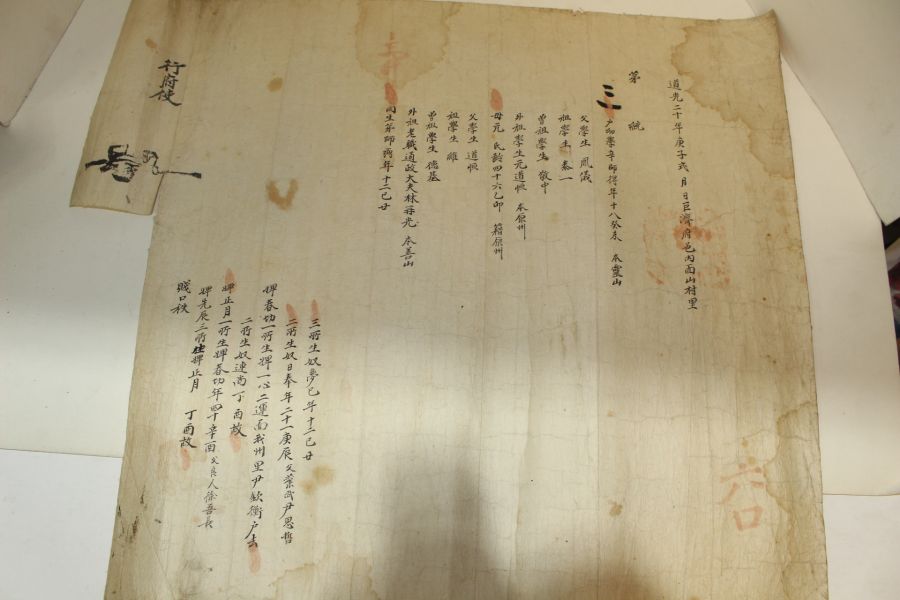 道光二十年庚子式 月 日巨濟府邑內面山村里
第 三 號
戶幼學辛師得年十八癸未 本靈山
父學生 鳳儀
祖學生 泰一
曾祖學生 敬中
外祖學生元道恒 本原州
母元 氏齡四十六乙卯 籍原州
父學生 道恒
祖學生
曾祖學生 德基
外祖老職通政大夫林 光 本善山
同生弟師 年十二己丑
賤口秩
婢先辰三所生婢正月 丁酉故
婢正月一所生婢春切年四十辛酉父良人 吾長
二所生奴連尚丁酉故
婢春切一所生婢一心二運面我州里尹欽衡戶去
二所生奴日奉年二十一庚辰父業武尹思哲
三所生奴夢已年十二己丑
行府使
六口